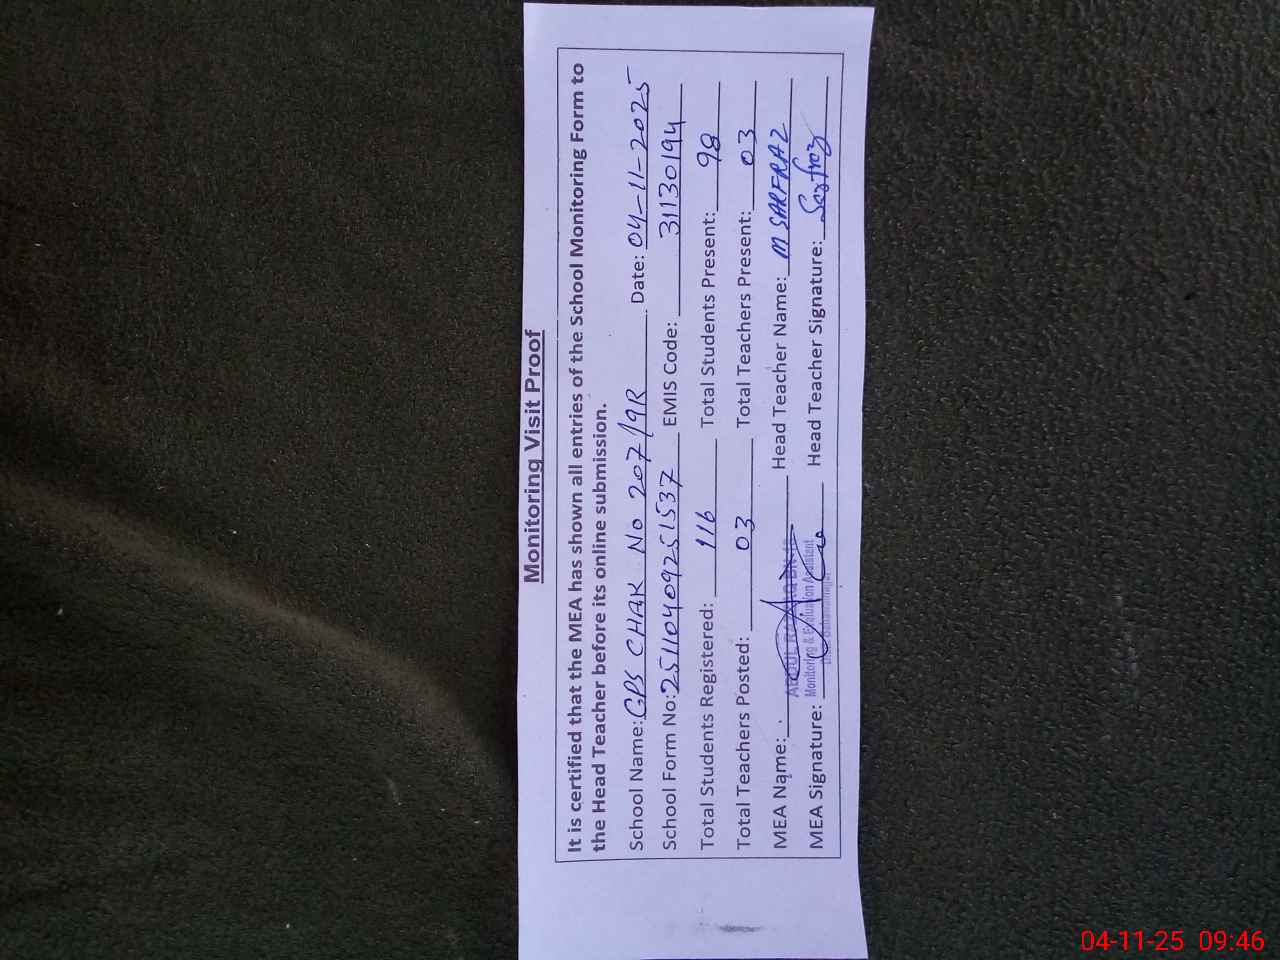 Monitoring Visit Proof
It is certified that the MEA has shown all entries of the School Monitoring Form to
the Head Teacher before its online submission.
School Name: GPS CHAK No 207/9R Date: 04-11-2025
School Form No: 25110409251537 EMIS Code: 31130194
Total Students Registered: 116 Total Students Present: 98
Total Teachers Posted: 03 Total Teachers Present: 03
MEA Name: ABDUL Head Teacher Name: M SARFRAZ
Monitoring & Evaluation Assistant
MEA Signature: Head Teacher Signature: Sarfraz
04-11-25 09:46